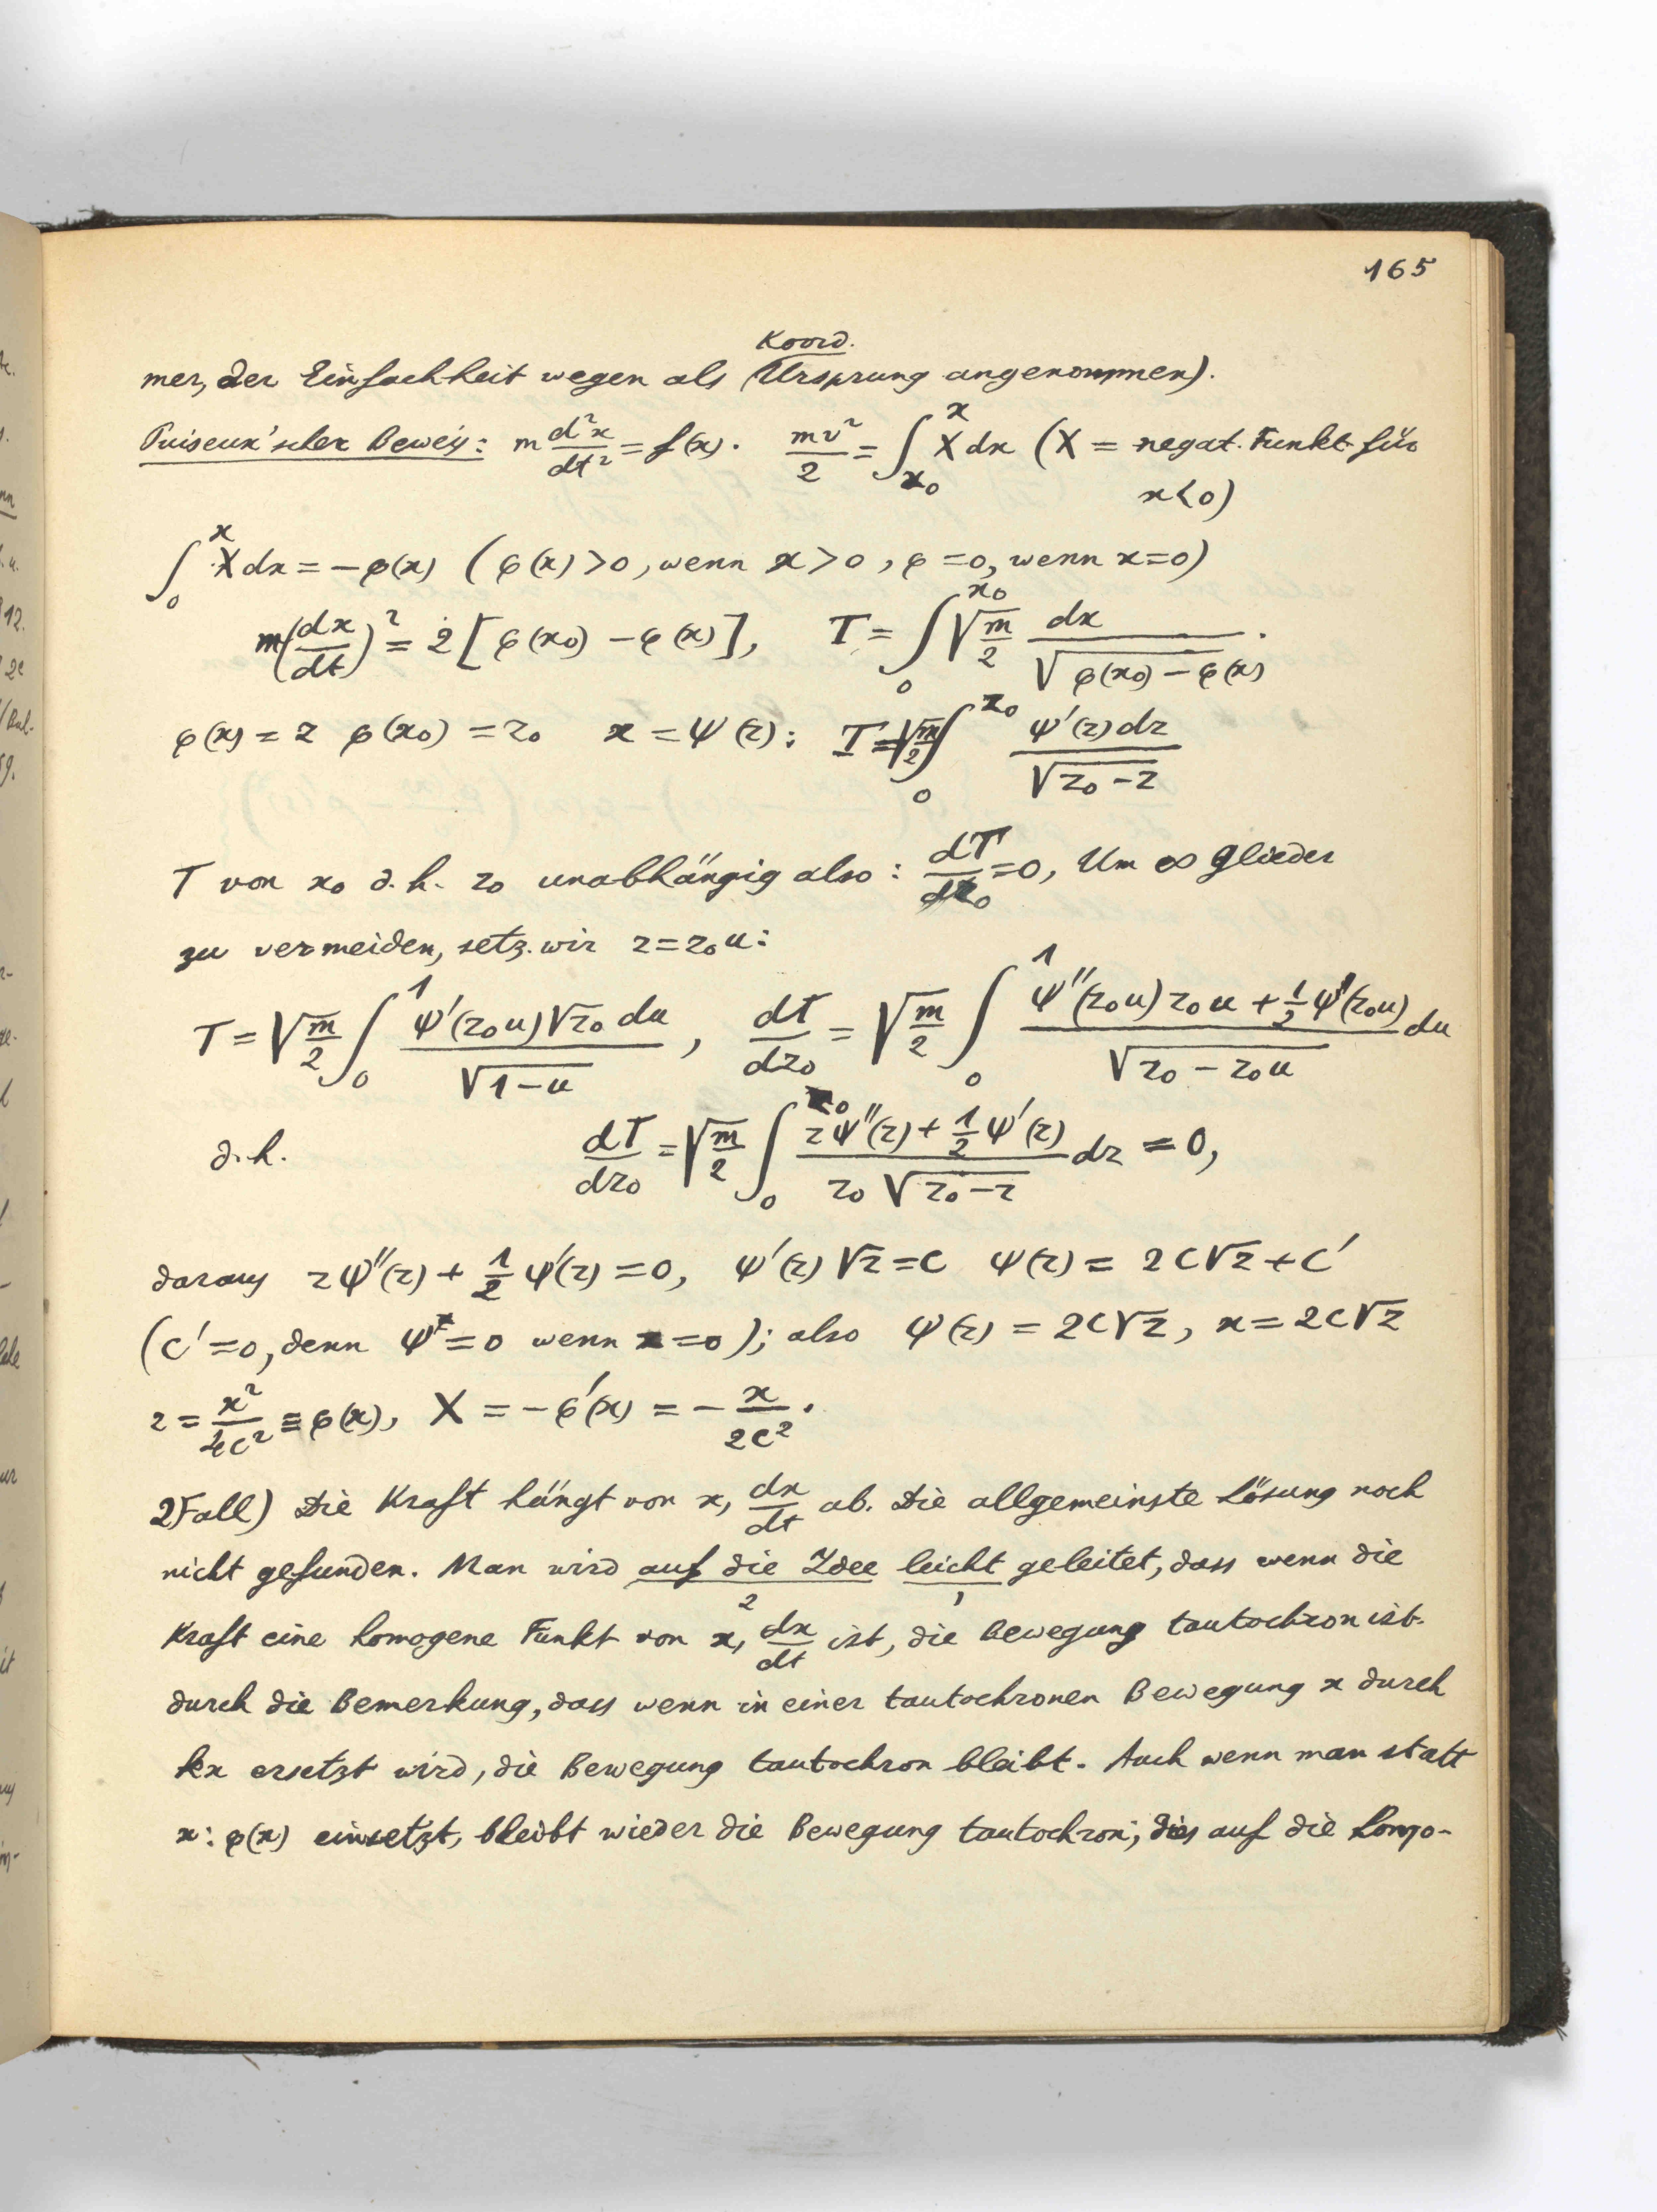 165
Koord.
mer, der Einfachheit wegen als Ursprung angenommen).
Puiseux'scher Beweis: m d²x/dt² = f(x). mv²/2 = ∫_{x₀}^{x} X dx (X = negat. Funkt. für
x<0)
∫_0^x X dx = −φ(x) (φ(x)>0, wenn x>0, φ=0, wenn x=0)
m(dx/dt)² = 2[φ(x₀) − φ(x)], T = ∫_0^{x₀} √(m/2) dx/√(φ(x₀) − φ(x)).
φ(x) = z φ(x₀) = z₀ x = ψ(z): T = √(m/2) ∫_0^{z₀} ψ'(z)dz/√(z₀−z)
T von x₀ d.h. z₀ unabhängig also: dT/dz₀ = 0, Um ∞ Glieder
zu vermeiden, setz. wir z = z₀u:
T = √(m/2) ∫_0^1 ψ'(z₀u)√z₀ du/√(1−u), dT/dz₀ = √(m/2) ∫_0^1 (ψ''(z₀u) z₀u + ½ψ'(z₀u))/√(z₀ − z₀u) du
d.h. dT/dz₀ = √(m/2) ∫_0^{z₀} (zψ''(z) + ½ψ'(z))/(z₀√(z₀−z)) dz = 0,
daraus zψ''(z) + ½ψ'(z) = 0, ψ'(z)√z = C ψ(z) = 2C√z + C'
(C'=0, denn ψ=0 wenn z=0); also ψ(z) = 2C√z, x = 2C√z
z = x²/4C² ≡ φ(x), X = −φ'(x) = −x/2C².
2Fall) Die Kraft hängt von x, dx/dt ab. Die allgemeinste Lösung noch
nicht gefunden. Man wird auf die Idee leicht geleitet, dass wenn die
2 1
Kraft eine homogene Funkt von x, dx/dt ist, die Bewegung tautochron ist.
durch die Bemerkung, dass wenn in einer tautochronen Bewegung x durch
kx ersetzt wird, die Bewegung tautochron bleibt. Auch wenn man statt
x: φ(x) einsetzt, bleibt wieder die Bewegung tautochron; dies auf die homo-